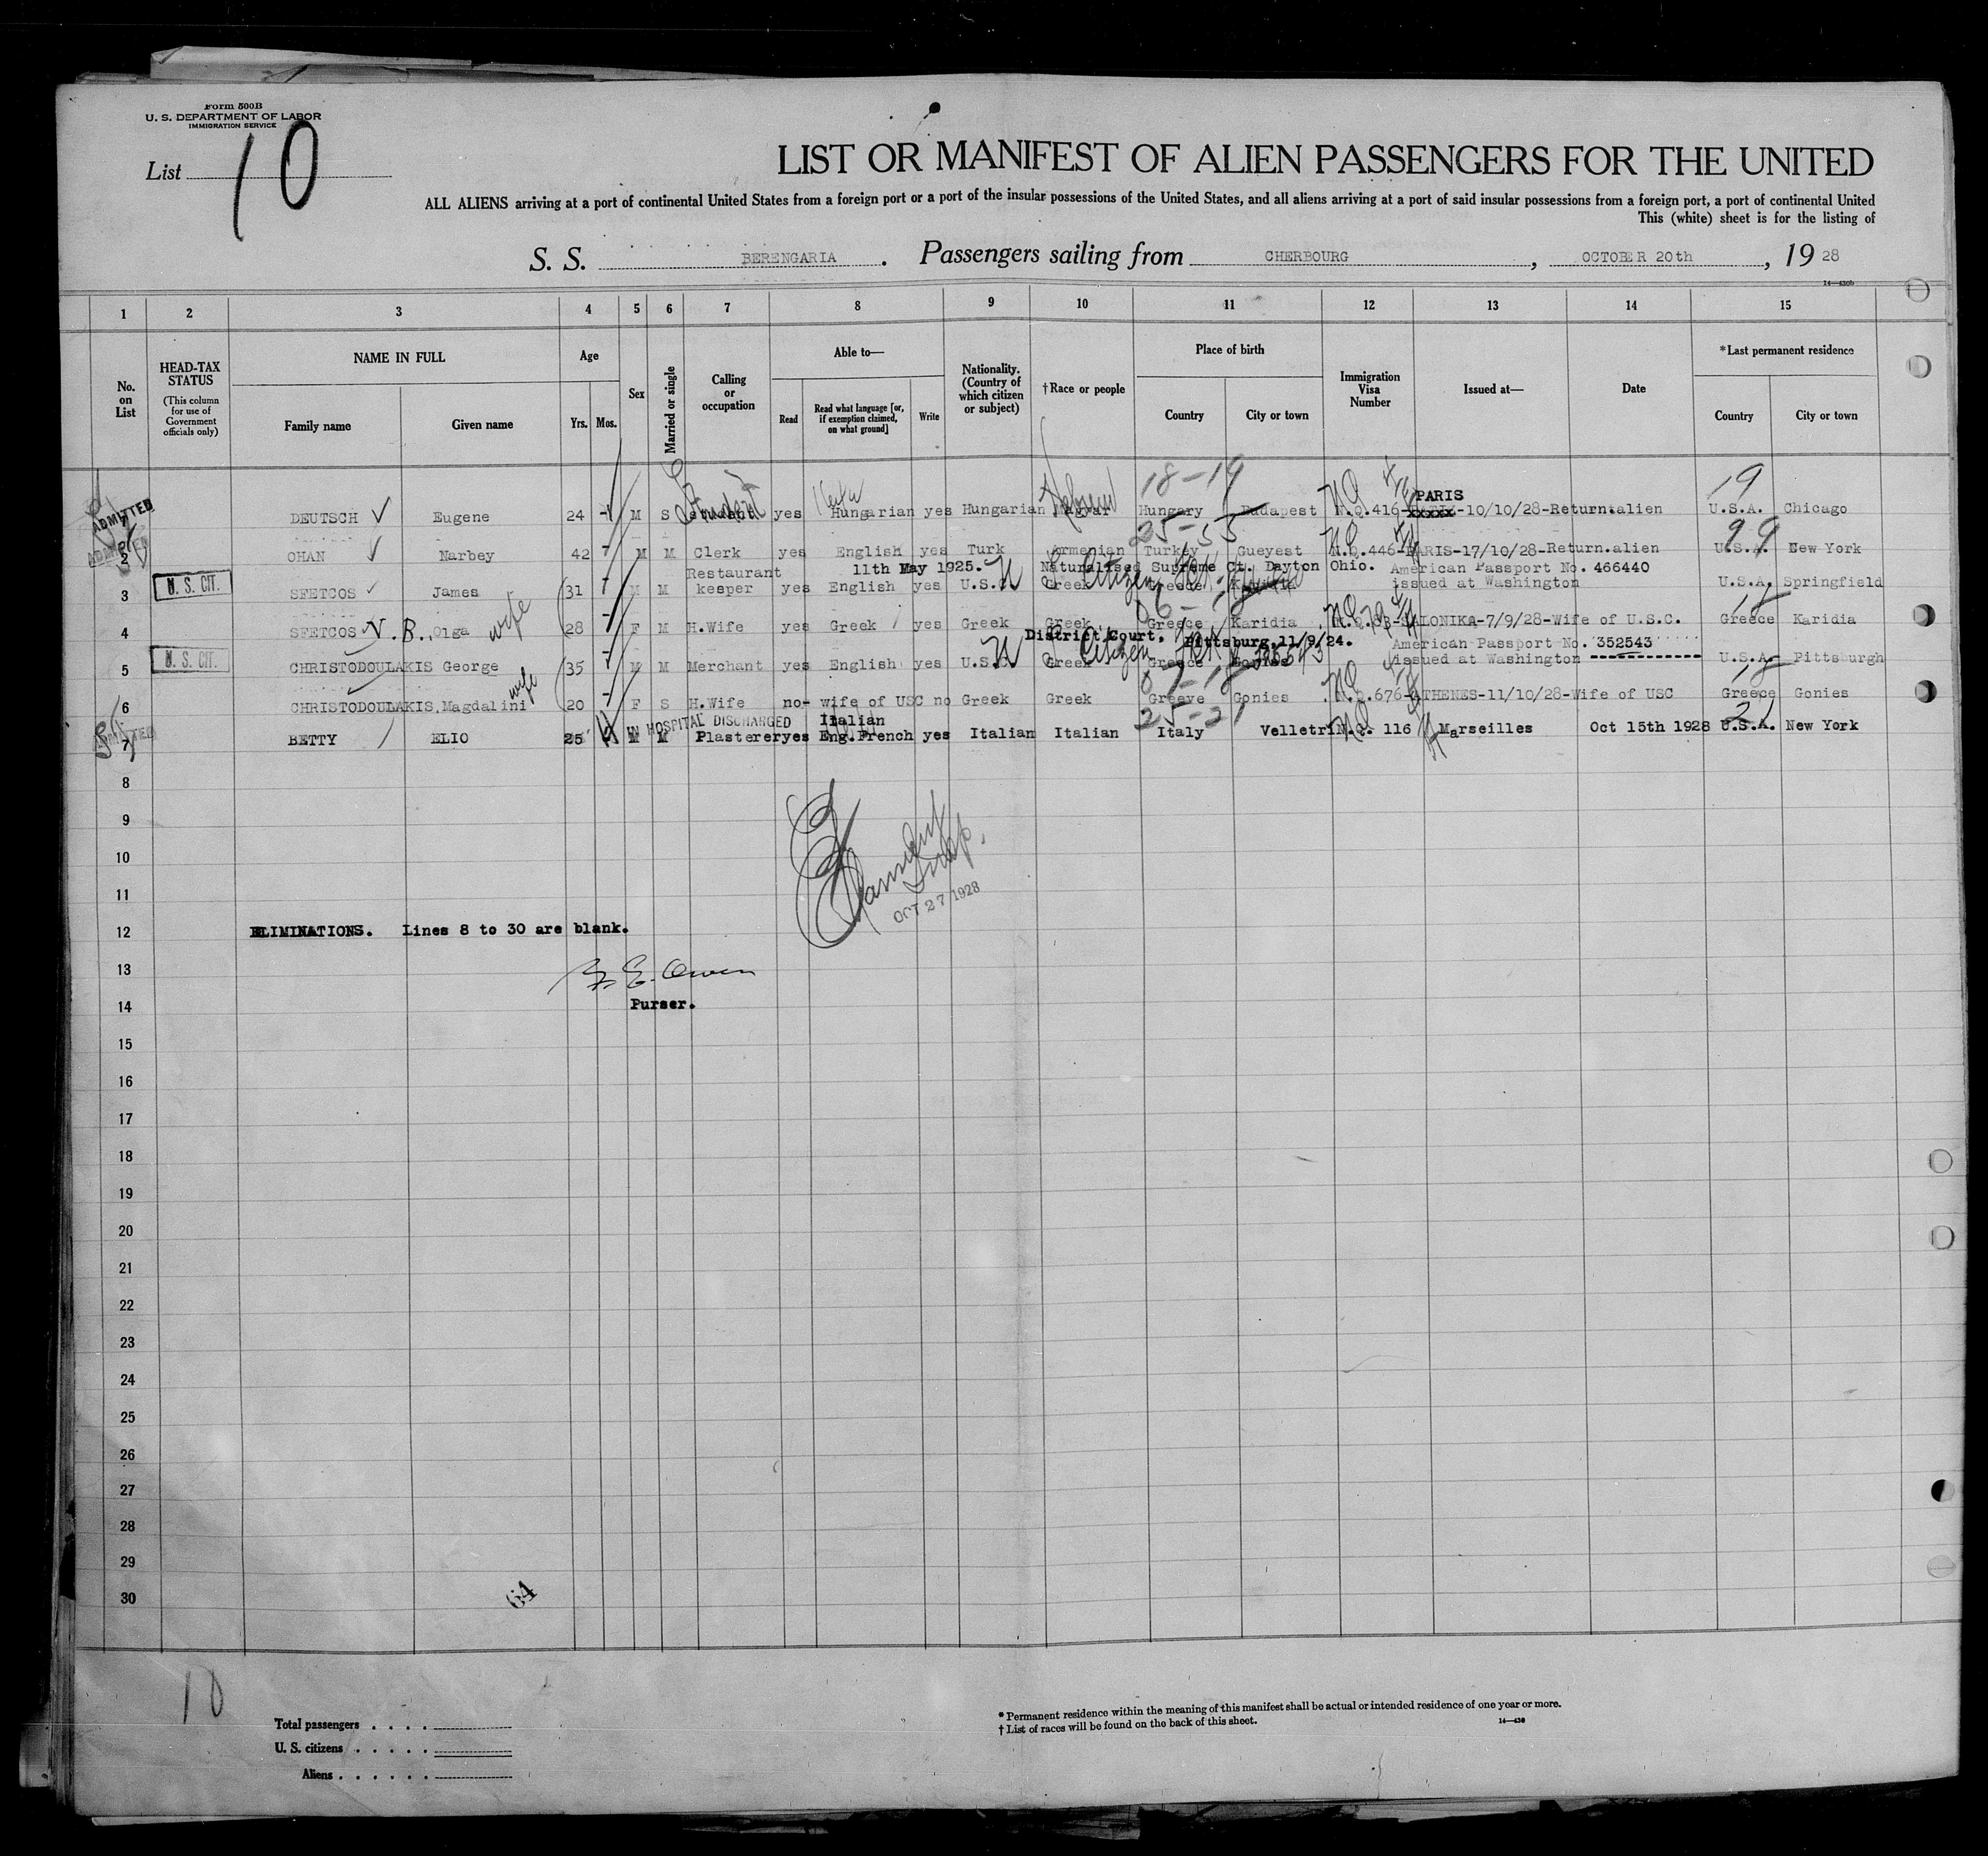 Form 500B
U. S. DEPARTMENT OF LABOR
IMMIGRATION SERVICE
List 10
LIST OR MANIFEST OF ALIEN PASSENGERS FOR THE UNITED
ALL ALIENS arriving at a port of continental United States from a foreign port or a port of the insular possessions of the United States, and all aliens arriving at a port of said insular possessions from a foreign port, a port of continental United
This (white) sheet is for the listing of
S. S. BERENGARIA. Passengers sailing from CHERBOURG, OCTOBER 20th, 19 28
14—430b
1 2 3 4 5 6 7 8 9 10 11 12 13 14 15
No. on List
HEAD-TAX STATUS (This column for use of Government officials only)
NAME IN FULL
Family name Given name
Age
Yrs. Mos.
Sex
Married or single
Calling or occupation
Able to—
Read Read what language [or, if exemption claimed, on what ground] Write
Nationality. (Country of which citizen or subject)
†Race or people
Place of birth
Country City or town
Immigration Visa Number
Issued at—
Date
*Last permanent residence
Country City or town
18-19 19
ADMITTED Student Hebrew PARIS
DEUTSCH Eugene 24 M S student yes Hungarian yes Hungarian Magyar Hungary Budapest N.Q.416- xxxxx-10/10/28-Return.alien U.S.A. Chicago
25-55 99
ADMITTED 2 OHAN Narbey 42 M M Clerk yes English yes Turk Armenian Turkey Gueyest N.Q.446-PARIS-17/10/28-Return.alien U.S.A. New York
Restaurant 11th May 1925. Naturalised Supreme Ct. Dayton Ohio. American Passport No. 466440
3 U. S. CIT. SFETCOS James 31 M M keeper yes English yes U.S.C. Greek Citizen Greece Karidia issued at Washington U.S.A. Springfield
4 SFETCOS N. B., Olga wife 28 F M H.Wife yes Greek yes Greek Greek Greece Karidia SALONIKA-7/9/28-Wife of U.S.C. Greece Karidia
District Court. Pittsburg.11/9/24. American Passport No. 352543
5 U. S. CIT. CHRISTODOULAKIS George 35 M M Merchant yes English yes U.S.C. Greek Citizen Greece Gonies issued at Washington U.S.A. Pittsburgh
6 CHRISTODOULAKIS, Magdalini wife 20 F S H.Wife no- wife of USC no Greek Greek Greeve Gonies N.Q.676-ATHENES-11/10/28-Wife of USC Greece Gonies
IN HOSPITAL DISCHARGED Italian 25-21 21
ADMITTED 7 BETTY ELIO 25 M M Plasterer yes Eng.French yes Italian Italian Italy Velletri N.Q. 116 Marseilles Oct 15th 1928 U.S.A. New York
8
9
10
11
OCT 27 1928
12 ELIMINATIONS. Lines 8 to 30 are blank.
13 Owen
14 Purser.
15
16
17
18
19
20
21
22
23
24
25
26
27
28
29
30
64
10
Total passengers . . . .
U. S. citizens . . . . .
Aliens . . . . . .
* Permanent residence within the meaning of this manifest shall be actual or intended residence of one year or more.
† List of races will be found on the back of this sheet.
14—430